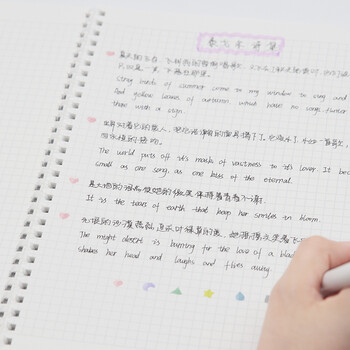 夏天的飞鸟,飞到我的窗前唱歌,又飞去了
只叹息一声,飞落在那里。
Stray birds of summer come to my window to sing and
And yellow leaves of autumn which have no songs flutter
there with a sign.
世界对着它的爱人,把它浩瀚的面具揭下了。它变小了,小如一首歌,
The world puts off it's mask of vastness to it's lover. It bec
small as one song, as one kiss of the eternal.
是大地的泪点使她的微笑保持着青春不谢。
It is the tears of earth that keep her smiles in bloom.
无垠的沙漠热烈追求一叶绿草的爱,她摇摇头笑着飞
The might desert is burning for the love of a bla
shakes her head and laughs and flies away.